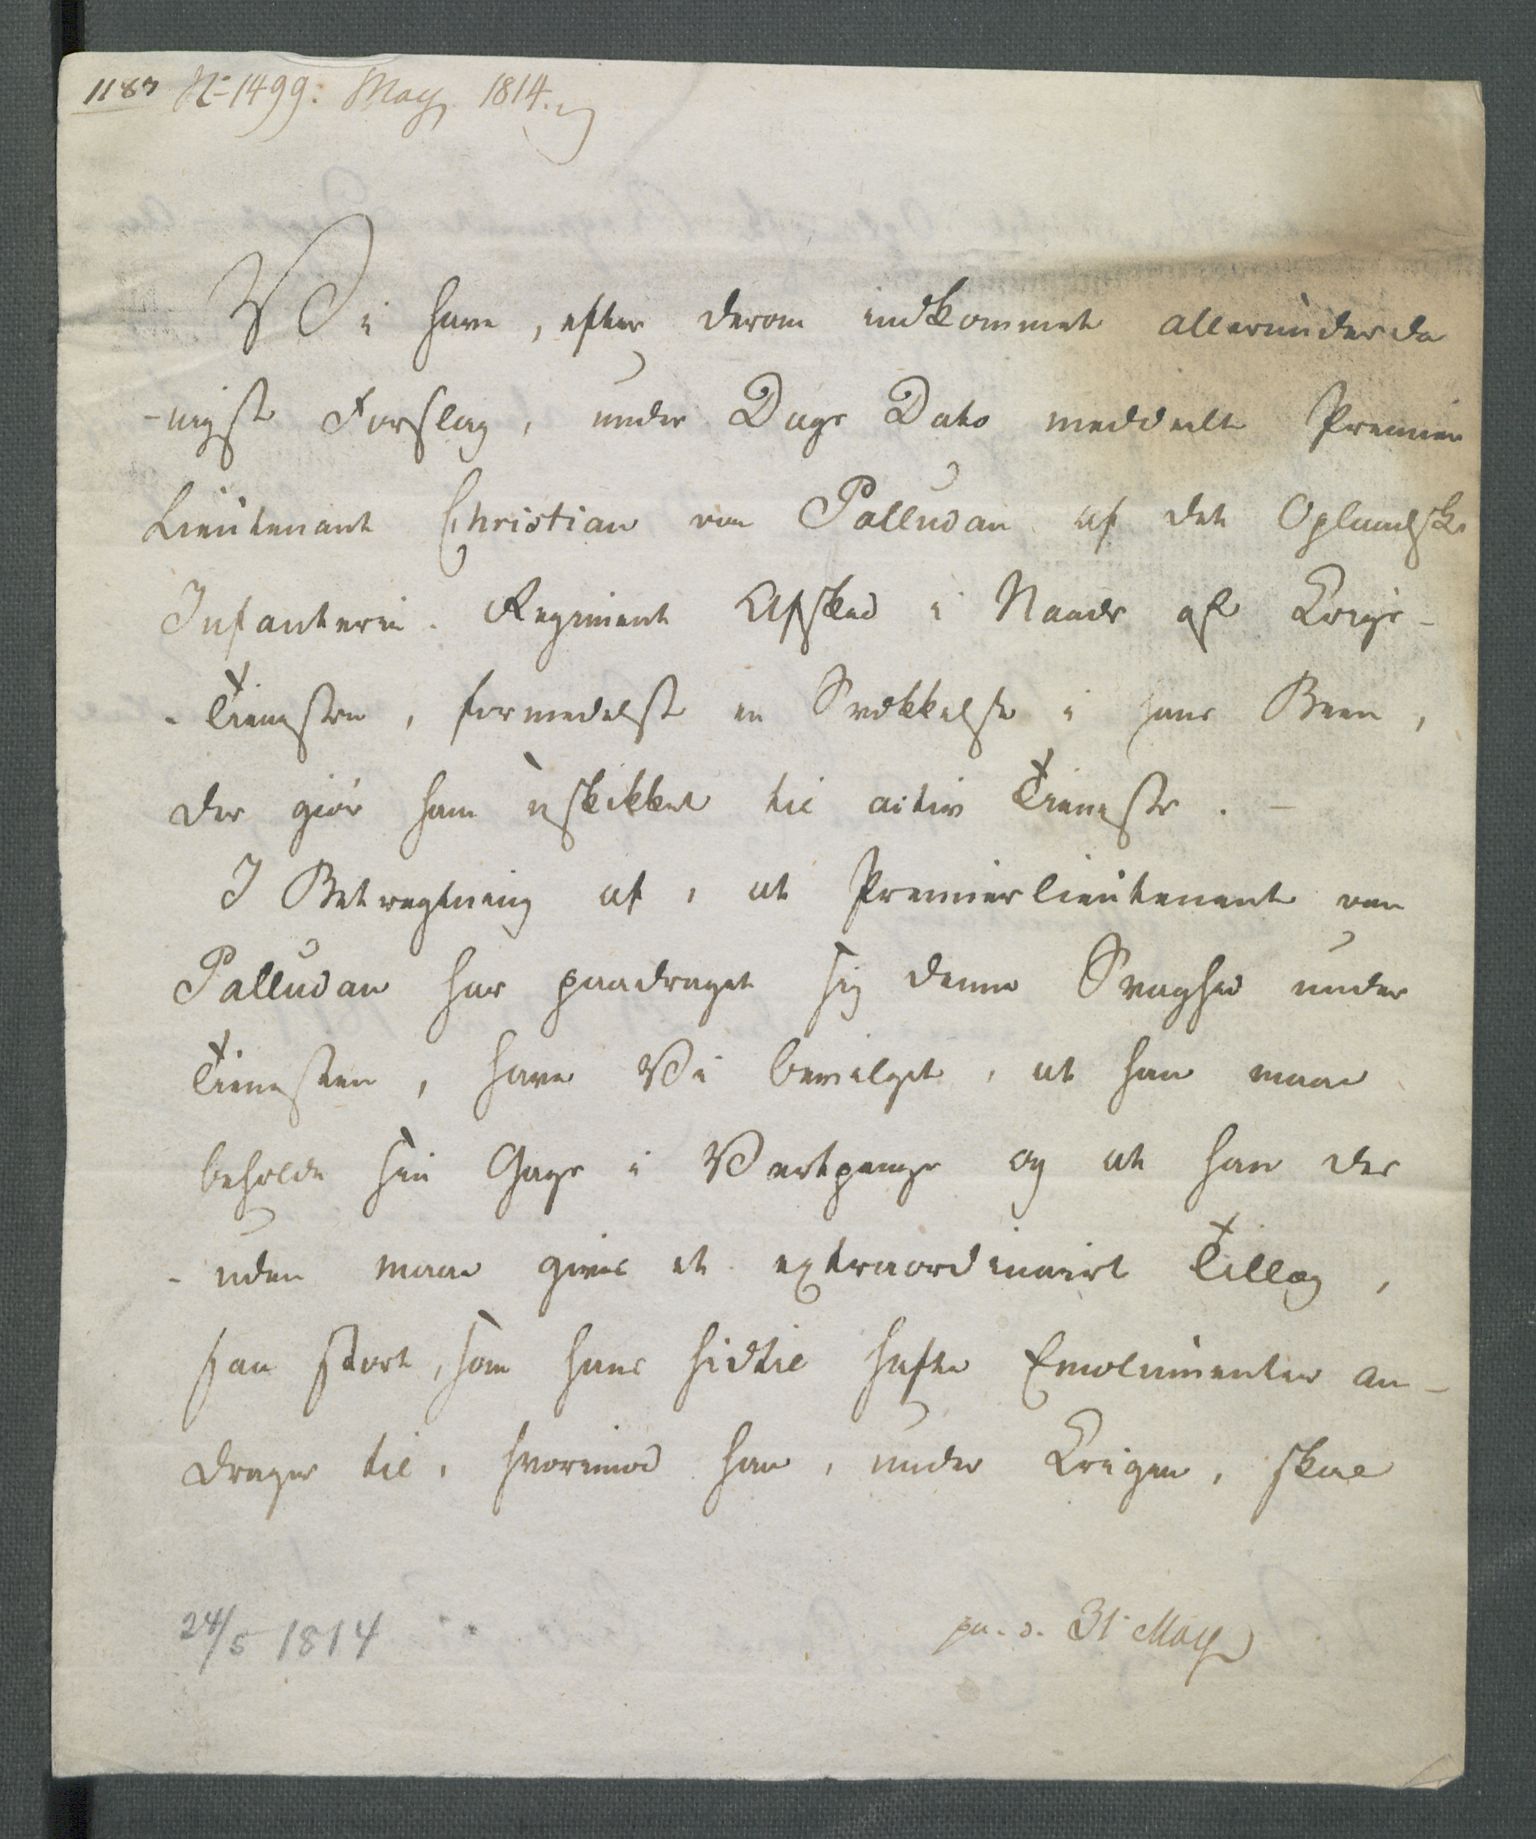 1187 No 1499. May 1814.
Vi have, efter derom indkommet allerunderda
-nigste Forslag, under Dags Dato meddeelt Premier
Lieutenant Christian von Palludan af det Oplandske
Infanterie-Regiment Afsked i Naade af Krigs-
-Tienesten, formedelst en Svækkelse i hans Been,
der giør ham uskikket til activ Tieneste. -
I Betragtning af, at Premierlieutenant von
Palludan har paadraget sig denne Svaghed under
Tienesten, have Vi bevilget, at han maae
beholde sin Gage i Vartpenge og at han des
-uden maae gives et extraordinairt Tillæg,
saa stort, som hans hidtil hafte Emolumenter an-
drager til, hvorimod han, under Krigen, skal
24/5 1814
pa. d. 31 May